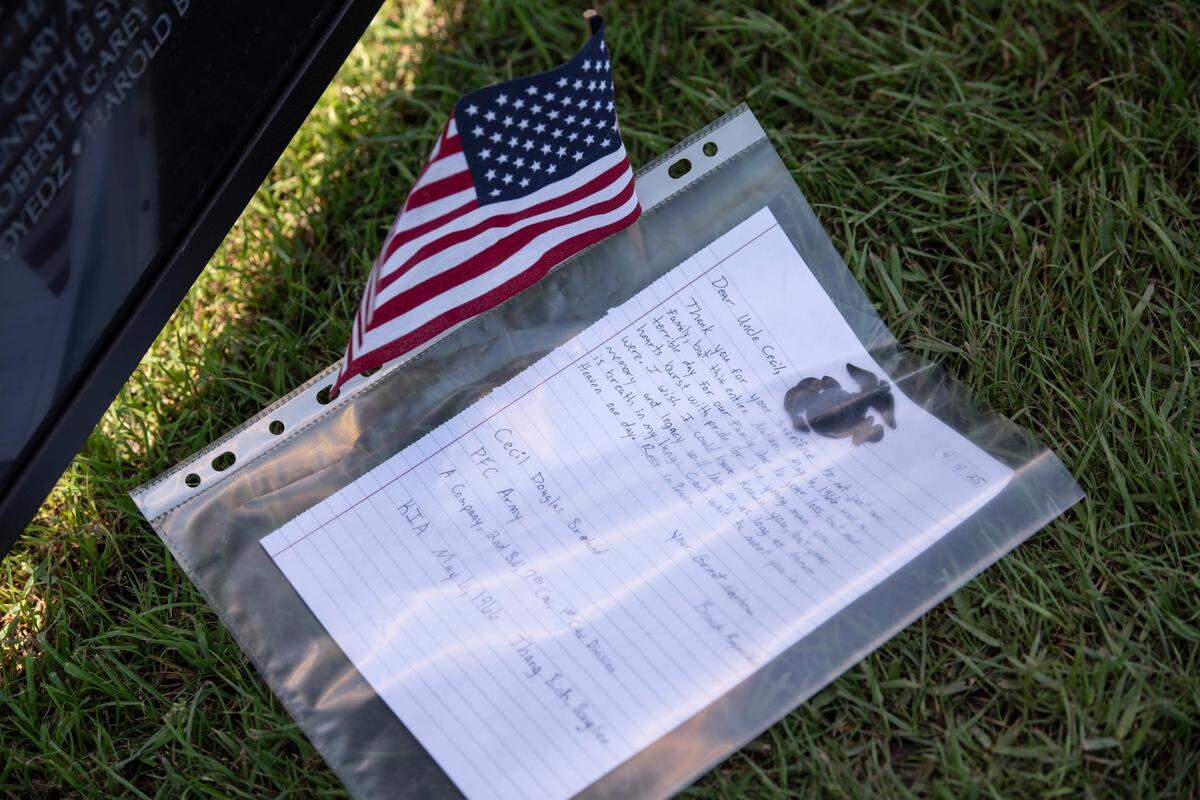 GARY
KENNETH B
ROBERT E GAREY
HAROLD B
4/16/25
Dear Uncle Cecil,
Thank you for your sacrifice to not just our
family but this entire Nation. May 6, 1966 was a
terrible day for our family due to your loss, but our
hearts burst with pride for the young man you
were. I wish I could have known you, but your
memory and legacy will live on as long as there
is breath in my lungs. Can't wait to meet you in
Heaven one day. Rest in Peace.
Your Great Nephew
Cecil Douglas
PFC Army
A Company, 2nd Bn, 7th Cav, 1st Cav Division
KIA May 6, 1966